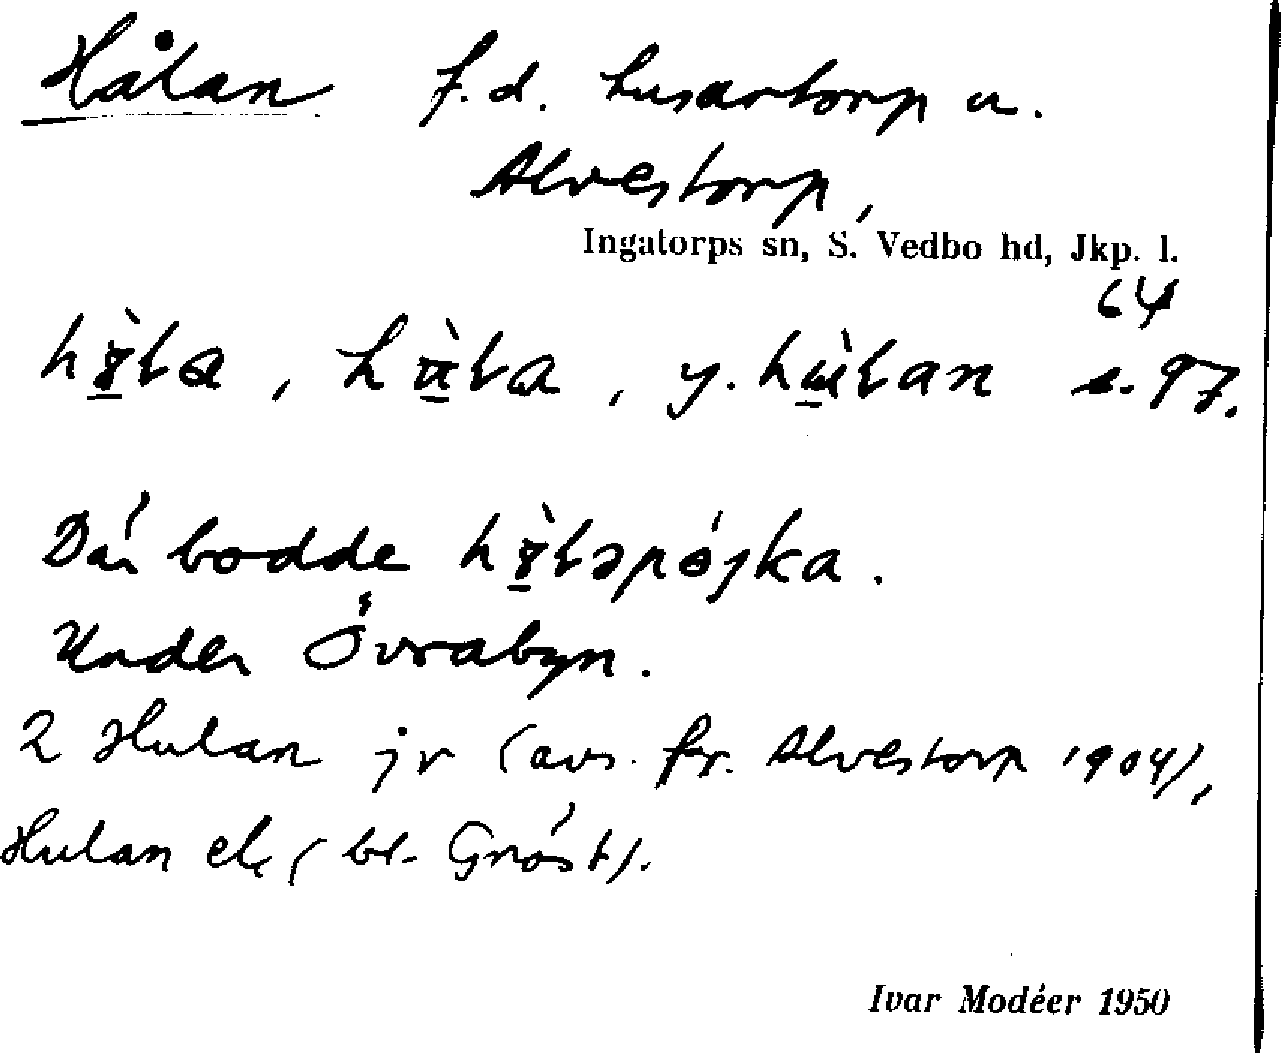 Hålan f.d. husartorp u.
Alvestorp,
Ingatorps sn, S. Vedbo hd, Jkp. l.
64
y. s. 97.
Där bodde
Under Övrabyn.
2 Hulan jr (avs. fr. Alvestorp 1904),
Hulan el. (bl.
Ivar Modéer 1950